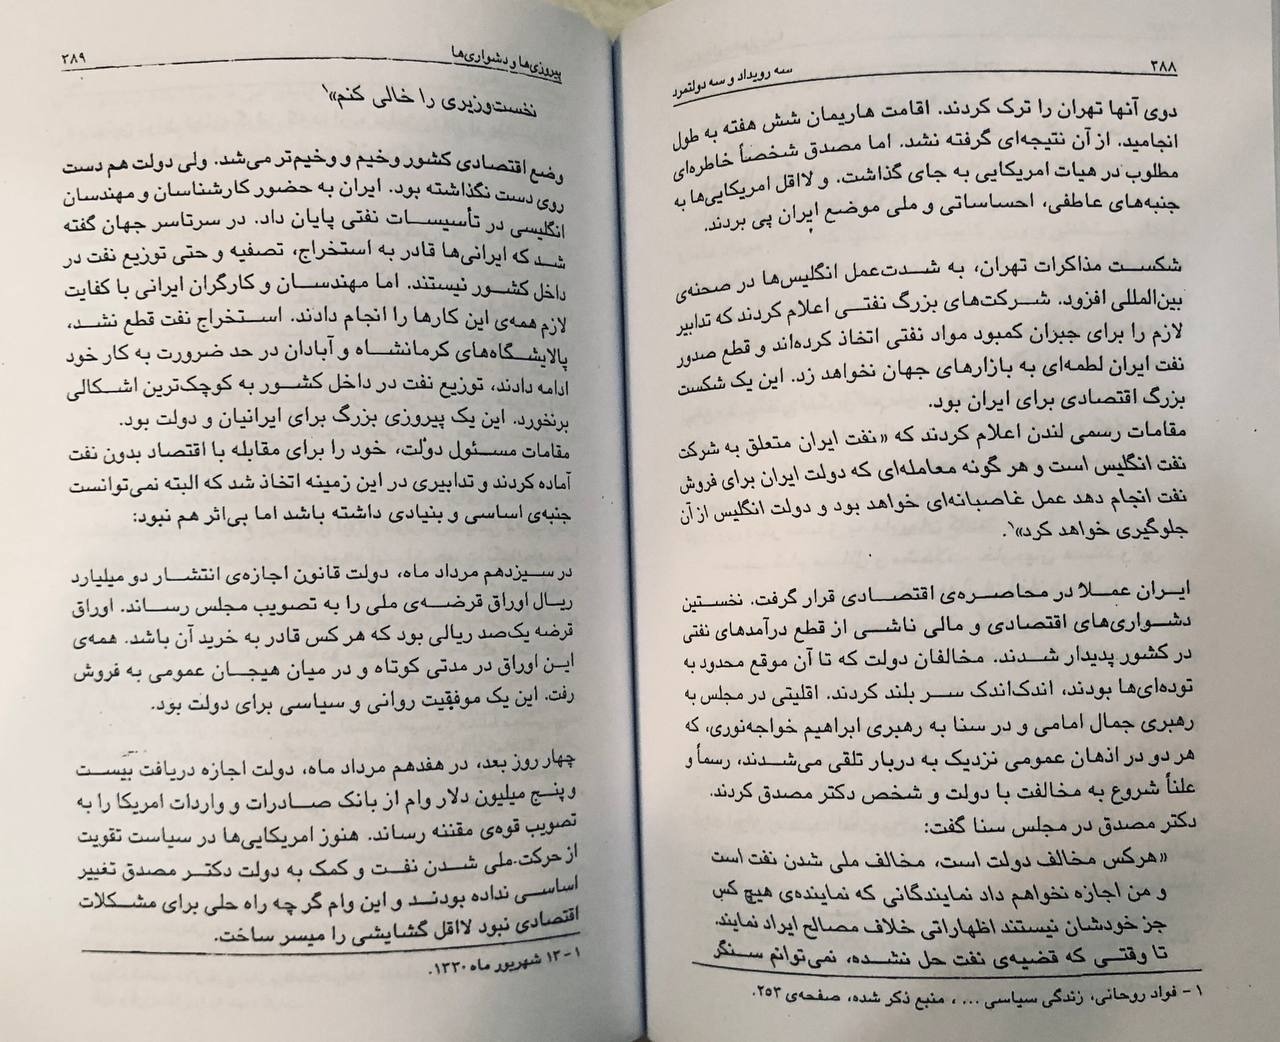 ۳۸۸
سه رویداد و سه دولتمرد
دوی آنها تهران را ترک کردند. اقامت هاریمان شش هفته به طول
انجامید. از آن نتیجه‌ای گرفته نشد. اما مصدق شخصاً خاطره‌ای
مطلوب در هیات امریکایی به جای گذاشت. و لااقل امریکایی‌ها به
جنبه‌های عاطفی، احساساتی و ملی موضع ایران پی بردند.
شکست مذاکرات تهران، به شدت‌عمل انگلیس‌ها در صحنه‌ی
بین‌المللی افزود. شرکت‌های بزرگ نفتی اعلام کردند که تدابیر
لازم را برای جبران کمبود مواد نفتی اتخاذ کرده‌اند و قطع صدور
نفت ایران لطمه‌ای به بازارهای جهان نخواهد زد. این یک شکست
بزرگ اقتصادی برای ایران بود.
مقامات رسمی لندن اعلام کردند که «نفت ایران متعلق به شرکت
نفت انگلیس است و هر گونه معامله‌ای که دولت ایران برای فروش
نفت انجام دهد عمل غاصبانه‌ای خواهد بود و دولت انگلیس از آن
جلوگیری خواهد کرد»۱.
ایران عملاً در محاصره‌ی اقتصادی قرار گرفت. نخستین
دشواری‌های اقتصادی و مالی ناشی از قطع درآمدهای نفتی
در کشور پدیدار شدند. مخالفان دولت که تا آن موقع محدود به
توده‌ای‌ها بودند، اندک‌اندک سر بلند کردند. اقلیتی در مجلس به
رهبری جمال امامی و در سنا به رهبری ابراهیم خواجه‌نوری، که
هر دو در اذهان عمومی نزدیک به دربار تلقی می‌شدند، رسماً و
علناً شروع به مخالفت با دولت و شخص دکتر مصدق کردند.
دکتر مصدق در مجلس سنا گفت:
«هرکس مخالف دولت است، مخالف ملی شدن نفت است
و من اجازه نخواهم داد نمایندگانی که نماینده‌ی هیچ کس
جز خودشان نیستند اظهاراتی خلاف مصالح ایراد نمایند.
تا وقتی که قضیه‌ی نفت حل نشده، نمی‌توانم سنگر
۱- فواد روحانی، زندگی سیاسی ...، منبع ذکر شده، صفحه‌ی ۲۵۳.
پیروزی‌ها و دشواری‌ها
۳۸۹
نخست‌وزیری را خالی کنم»۱
وضع اقتصادی کشور وخیم و وخیم‌تر می‌شد. ولی دولت هم دست
روی دست نگذاشته بود. ایران به حضور کارشناسان و مهندسان
انگلیسی در تأسیسات نفتی پایان داد. در سرتاسر جهان گفته
شد که ایرانی‌ها قادر به استخراج، تصفیه و حتی توزیع نفت در
داخل کشور نیستند. اما مهندسان و کارگران ایرانی با کفایت
لازم همه‌ی این کارها را انجام دادند. استخراج نفت قطع نشد،
پالایشگاه‌های کرمانشاه و آبادان در حد ضرورت به کار خود
ادامه دادند، توزیع نفت در داخل کشور به کوچک‌ترین اشکالی
برنخورد. این یک پیروزی بزرگ برای ایرانیان و دولت بود.
مقامات مسئول دولت، خود را برای مقابله با اقتصاد بدون نفت
آماده کردند و تدابیری در این زمینه اتخاذ شد که البته نمی‌توانست
جنبه‌ی اساسی و بنیادی داشته باشد اما بی‌اثر هم نبود:
در سیزدهم مرداد ماه، دولت قانون اجازه‌ی انتشار دو میلیارد
ریال اوراق قرضه‌ی ملی را به تصویب مجلس رساند. اوراق
قرضه یک‌صد ریالی بود که هر کس قادر به خرید آن باشد. همه‌ی
این اوراق در مدتی کوتاه و در میان هیجان عمومی به فروش
رفت. این یک موفقیت روانی و سیاسی برای دولت بود.
چهار روز بعد، در هفدهم مرداد ماه، دولت اجازه دریافت بیست
و پنج میلیون دلار وام از بانک صادرات و واردات امریکا را به
تصویب قوه‌ی مقننه رساند. هنوز امریکایی‌ها در سیاست تقویت
از حرکت ملی شدن نفت و کمک به دولت دکتر مصدق تغییر
اساسی نداده بودند و این وام گر چه راه حلی برای مشکلات
اقتصادی نبود لااقل گشایشی را میسر ساخت.
۱- ۱۳ شهریور ماه ۱۳۳۰.